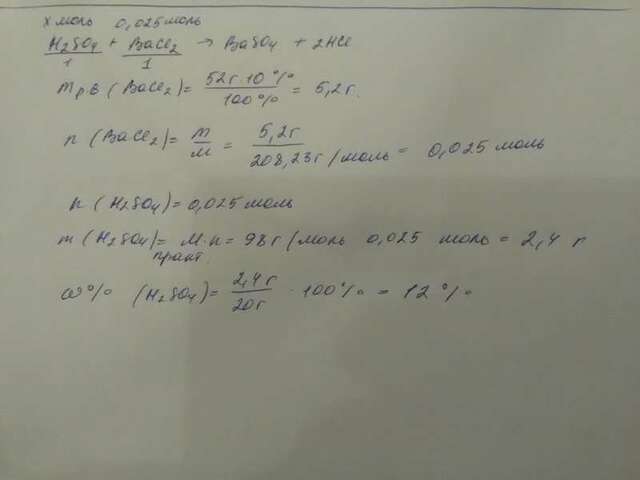 х моль 0,025 моль
H2SO4 + BaCl2 → BaSO4 + 2HCl
1 1
mр.в (BaCl2) = 52г · 10 % / 100 % = 5,2 г.
n (BaCl2) = m / M = 5,2 г / 208,23 г/моль = 0,025 моль
n (H2SO4) = 0,025 моль
m (H2SO4) = M · n = 98 г/моль 0,025 моль = 2,4 г
практ
ω % (H2SO4) = 2,4 г / 20 г · 100 % = 12 %